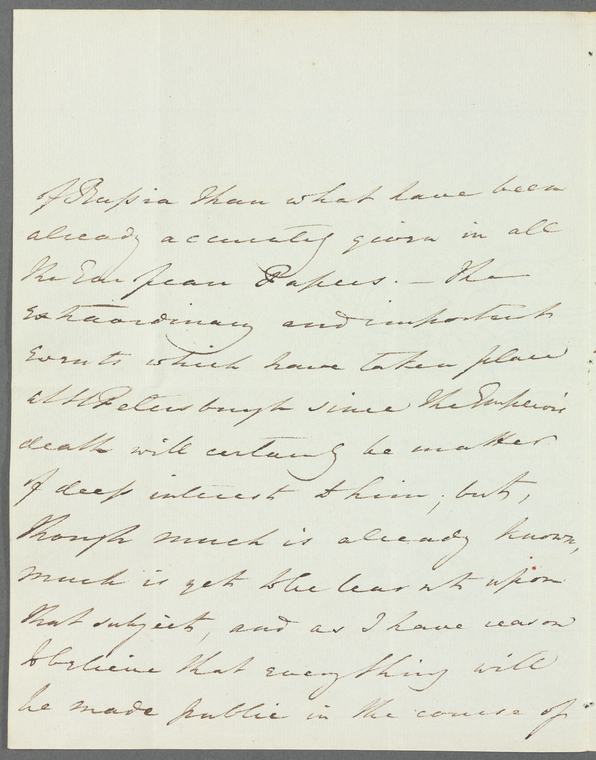 of Russia than what have been
already accurately given in all
the European Papers. — The
extraordinary and important
Events which have taken place
at St Petersburgh since the Emperor's
death will certainly be matter
of deep interest to him; but,
though much is already known,
much is yet to be learnt upon
that subject, and as I have reason
to believe that everything will
be made public in the course of